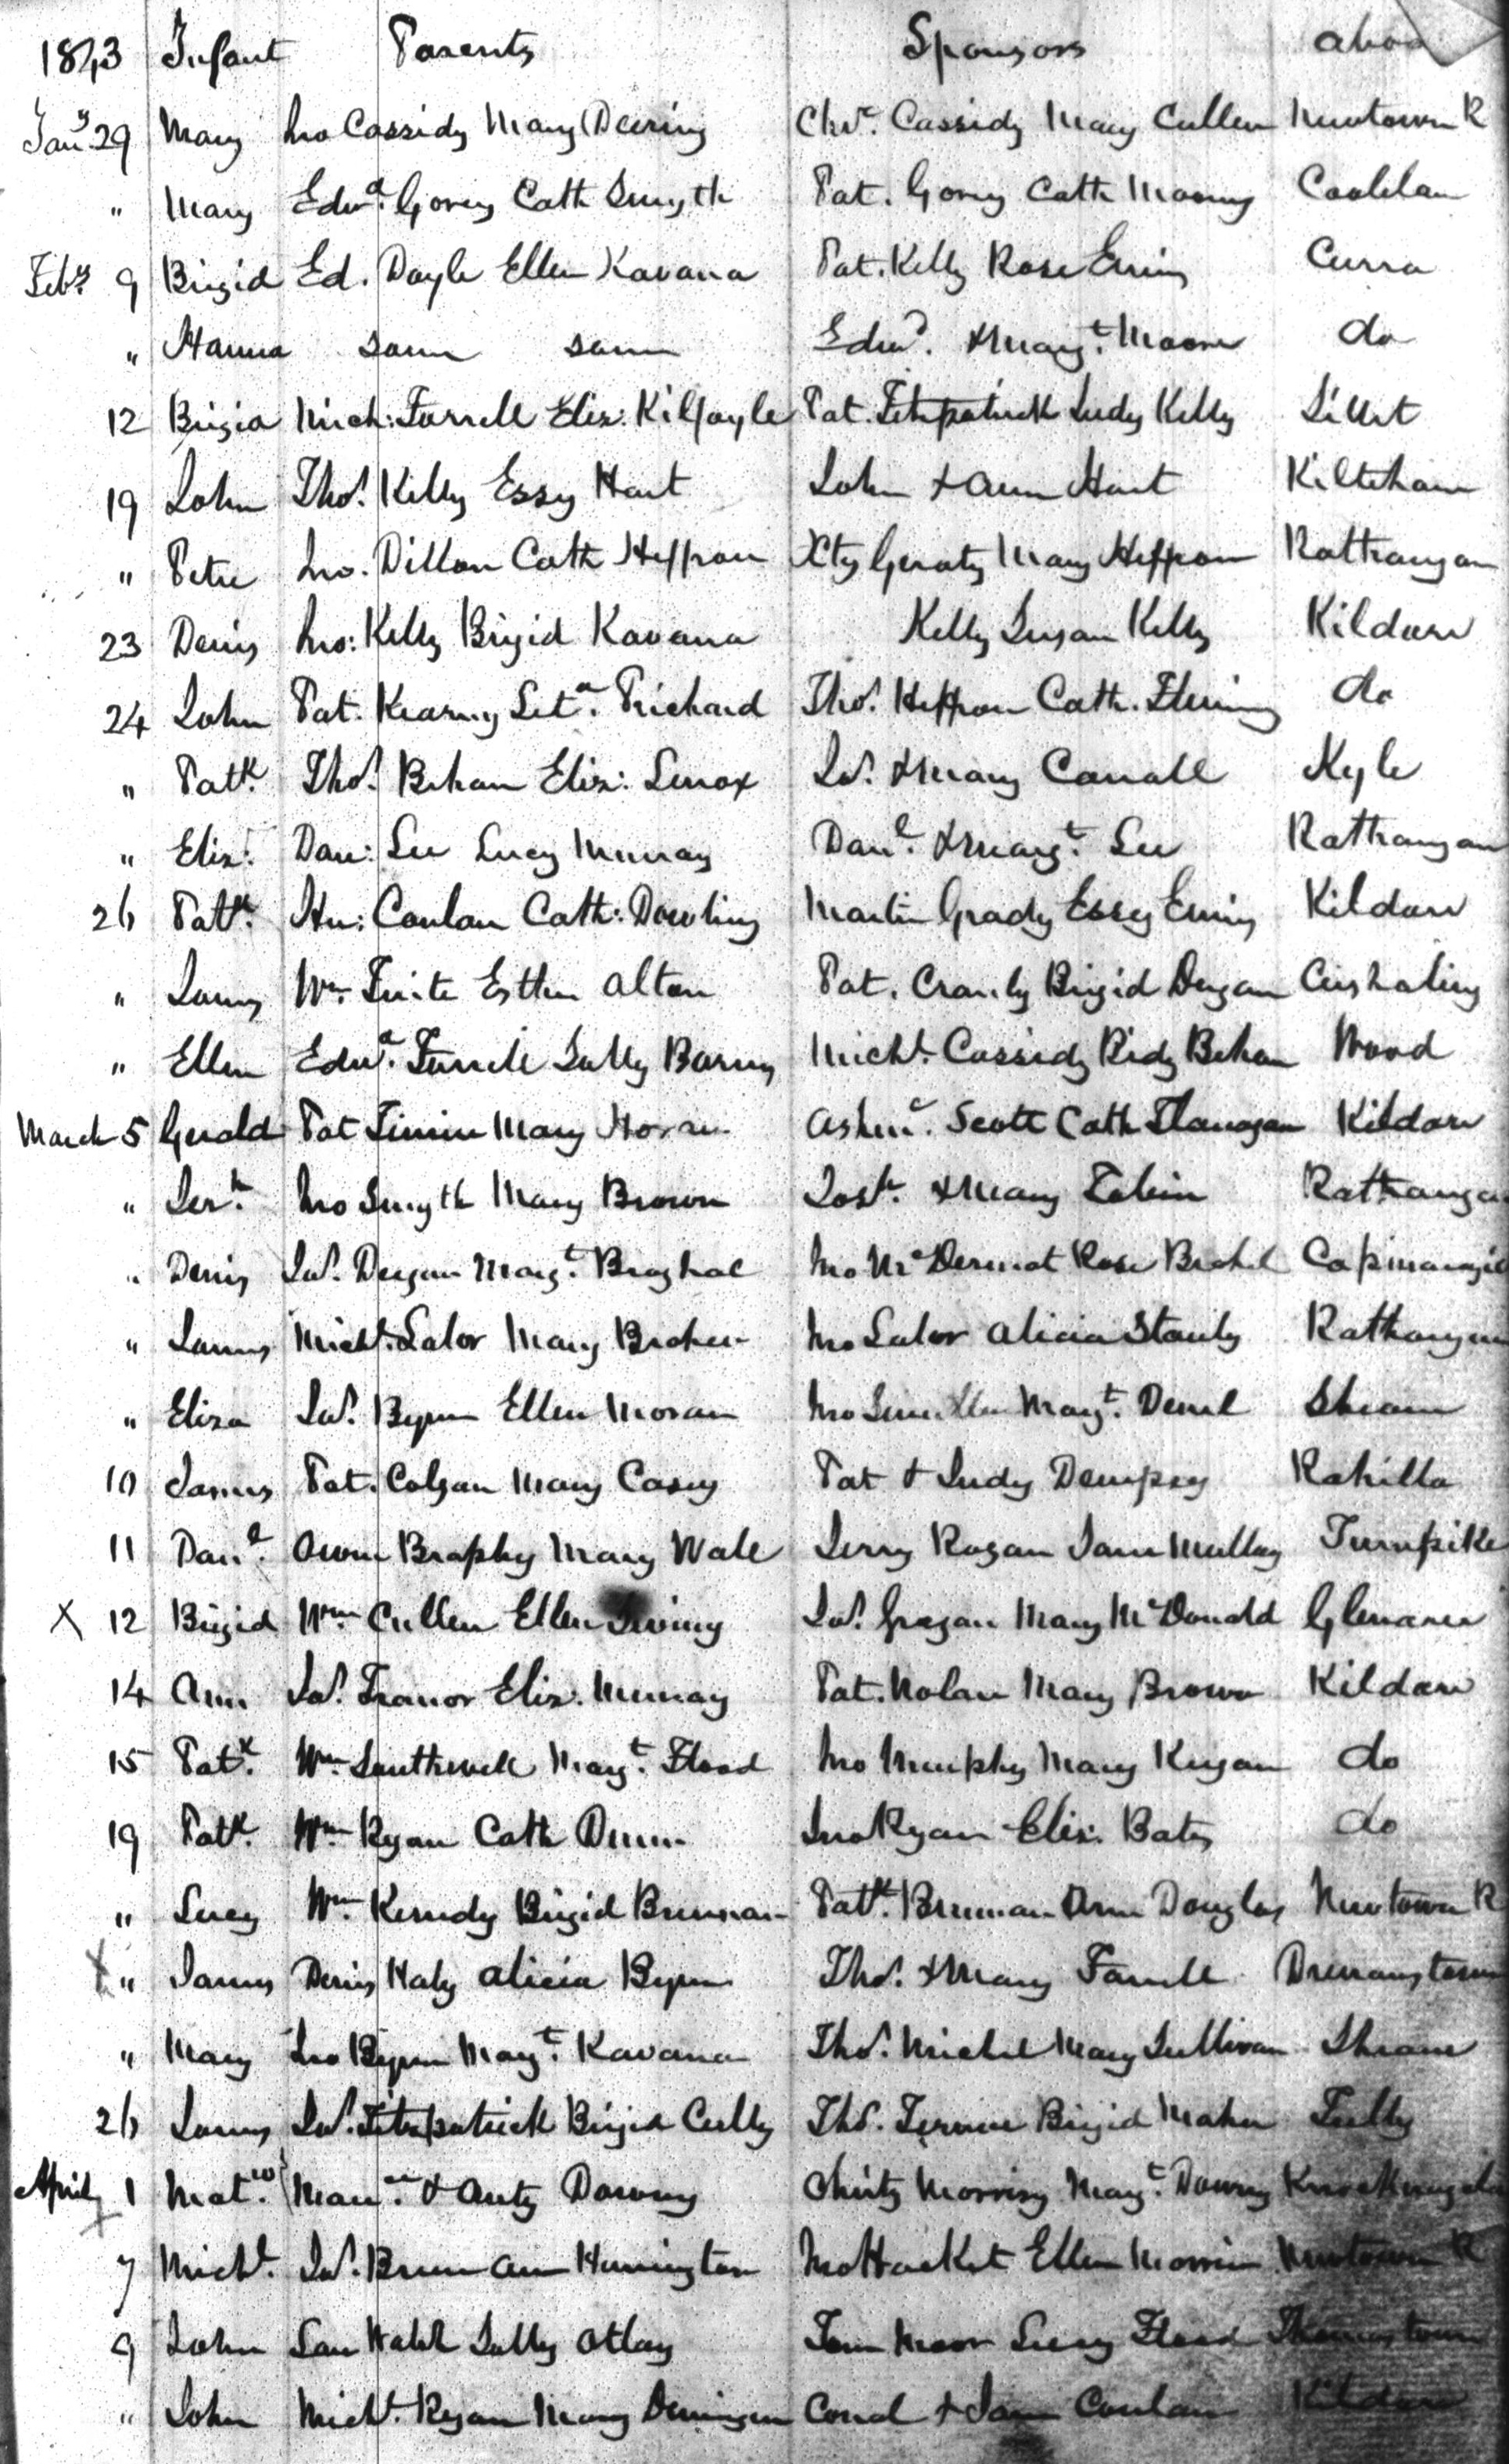 1843 Infant Parents Sponsors
Jany 29 Mary Jno Cassidy Mary Deering Chr. Cassidy Mary Cullen Newtown R
" Mary Edwd. Gorey Cath Smyth Pat. Gorey Cath Mooney
Feby 9 Brigid Ed. Doyle Ellen Kavana Pat. Kelly Rose Curra
" Hanna same same Edwd. & Margt. Moore do
12 Brigid Mich: Farrell Eliz: Kilfoyle Pat. Fitzpatrick Judy Kelly
19 John Thos. Kelly Essy Hart John & Ann Hart
" Peter Jno. Dillon Cath Heffron Xty Geraty Mary Heffron Rathangan
23 Denis Jno: Kelly Brigid Kavana Kelly Susan Kelly Kildare
24 John Pat. Kearny Leta. Prichard Thos. Heffron Cath. Fleming do
" Patk. Thos. Behan Eliz: Lenox Jas. & Mary Carroll Kyle
" Eliz: Dan: Lee Lucy Murray Danl. & Margt. Lee Rathangan
26 Patk. Hu: Conlan Cath: Dowling Martin Grady Essy Kildare
" James Wm. Esther Alton Pat. Cranly Brigid Degan Cushaling
" Ellen Edwd. Farrell Sally Michl. Cassidy Bidy Behan Wood
March 5 Gerald Pat Mary Horan Scott Cath Flanagan Kildare
" Jerh. Jno Smyth Mary Brown Josh. & Mary Tobin Rathangan
" Denis Jas. Degan Margt. Jno McDermot Rose
" James Michl. Lalor Mary Jno Lalor Alicia Stanly Rathangan
" Eliza Jas. Byrne Ellen Moran Jno Margt.
10 James Pat. Colgan Mary Casey Pat & Judy Dempsey Rahilla
11 Danl. Owen Brophy Mary Wale Jerry Rogan Jane Mullay Turnpike
X 12 Brigid Wm Cullen Ellen Jas. Grogan Mary McDonald
14 Ann Jas. Tranor Eliz. Murray Pat. Nolan Mary Brown Kildare
15 Patk. Wm. Southwell Margt. Flood Jno Murphy Mary Keegan do
19 Patk. Wm. Ryan Cath Dunn Jno Ryan Eliz: Bates do
" Lucy Wm. Kenedy Brigid Brennan Patk. Brennan Ann Douglas Newtown R
X " James Denis Haly Alicia Byrne Thos. & Mary Farrell
" Mary Jno Byrne Margt. Kavana Thos. Michel Mary Sullivan
26 James Jas. Fitzpatrick Brigid Cully Thos. Brigid Maher Tully
April 1 Matw. & Anty Downy Christy Morrisy Margt. Downy
X
7 Michl. Jas. Ann Jno Hacket Ellen Morrin Newtown R
9 John Lau Walsh Sally Tom Moor Lucy Flood Thomastown
" John Michl. Ryan Mary Conal & Jane Conlan Kildare